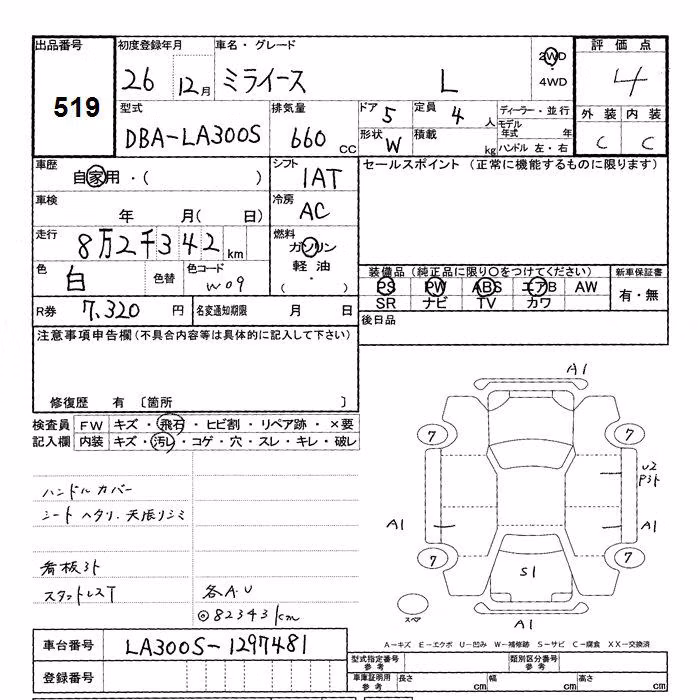 出品番号 初度登録年月 車名・グレード 2WD 評価点
519 26 12月 ミライース L 4WD 4
型式 排気量 ドア 5 定員 4人 ディーラー・並行 外装 内装
DBA-LA300S 660cc 形状 W 積載 kg モデル年式 年 ハンドル 左・右 C C
車歴 自家用・( ) シフト 1AT セールスポイント (正常に機能するものに限ります)
車検 年 月( 日) 冷房 AC
走行 8万2千342km 燃料 ガソリン
軽油・( )
色 白 色替 色コード W09 装備品 (純正品に限り〇をつけてください) 新車保証書
PS PW ABS エアB AW 有・無
SR ナビ TV カワ
R券 7,320円 名変通知期限 月 日 後日品
注意事項申告欄(不具合内容等は具体的に記入して下さい)
修復歴 有 〔箇所 〕
検査員 FW キズ・飛石・ヒビ割・リペア跡・×要
記入欄 内装 キズ・汚レ・コゲ・穴・スレ・キレ・破レ
ハンドルカバー
シートヘタリ.天張リジミ
看板3t
スタットレスT 各A.U
◎82343km
A1
7 7
U2
P3t
A1 A1
7 7
S1
スペア A1
A-キズ E-エクボ U-凹み W-補修跡 S-サビ C-腐食 XX-交換済
車台番号 LA300S-1297481
型式指定番号 参考 類別区分番号 参考
登録番号 車庫証明用 参考 長さ cm 幅 cm 高さ cm